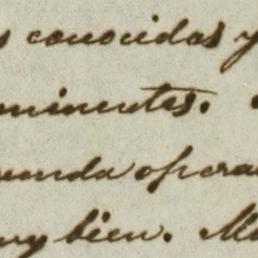 s conocidas y
minentes.
unda opera
uy bien. Ma